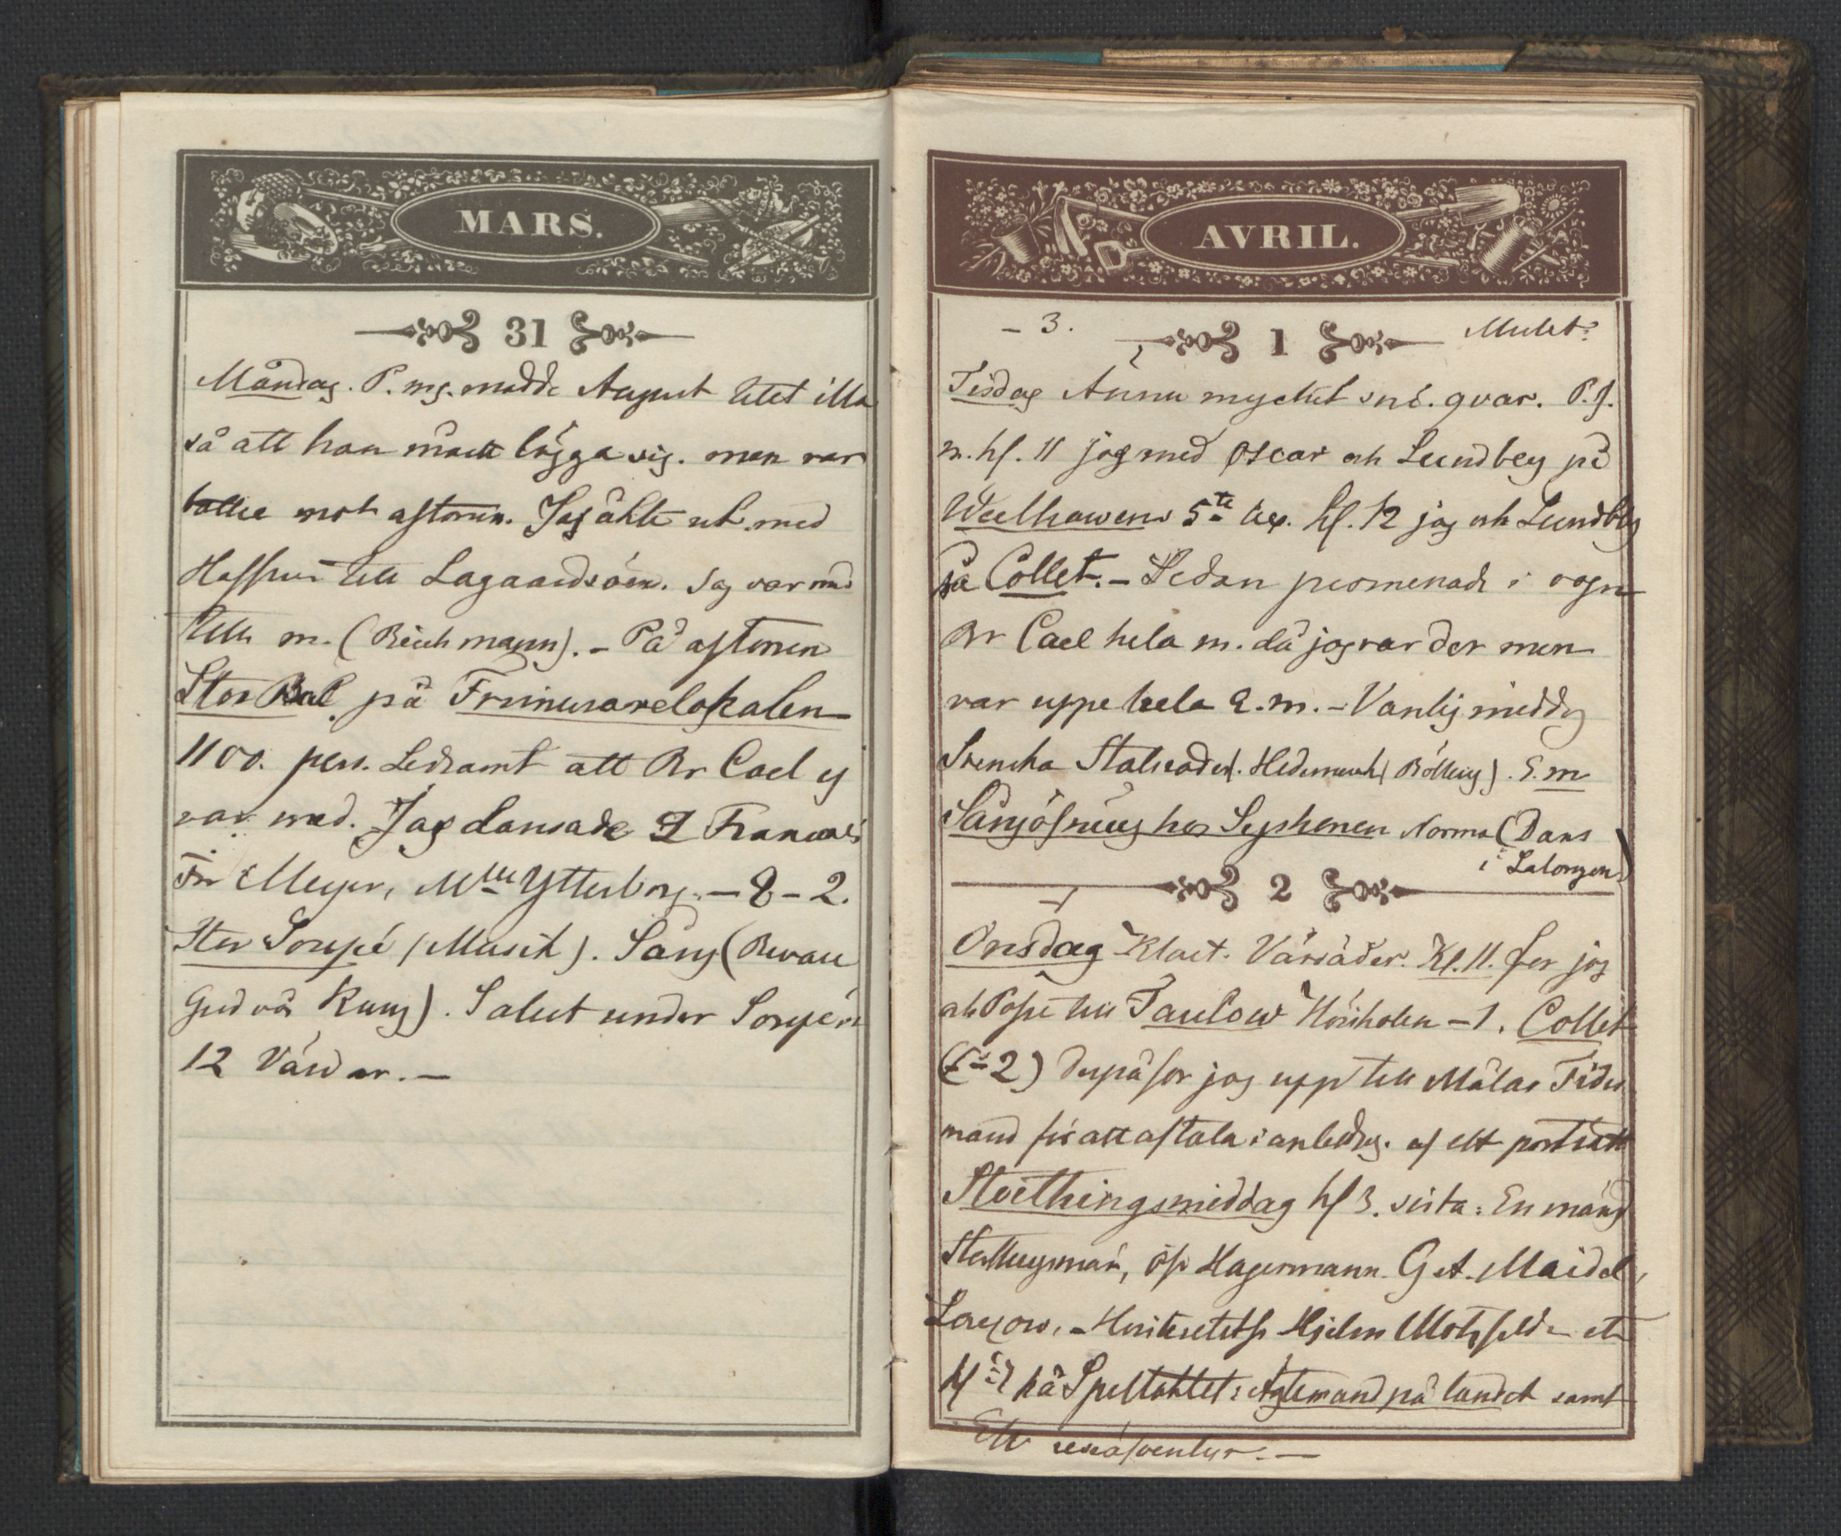 MARS.
31
Måndag. P. mg. mådde August litet illa
så att han måtte lägga sig. men var
bättre mot aftonen. Jag åkte ut med
till Lagaardsöen. Jag var med
till m. (Beichmann). – På aftonen
Stor Bal på Frimurarelokalen
1100. pers. Ledsamt att Br Carl ej
var med. Jag dansade 2 Francais
Fr Meyer, Mlle Ytterborg. – 8 – 2.
Stor Soupé (Musik). Sång (Bevare
Gud vår Kung). Salut under Soupén
12 Vårder. –
AVRIL.
– 3.
1
Mulet.
Tisdag Ännu mycket snö qvar. P. f.
m. kl. 11 jag med Oscar och Lundbey på
Welhavens 5te kl. 12 jag och Lundbey
på Collet. – Sedan promenade i vogn
Br Carl hela m. då jag var der men
var uppe hela e.m. – Vanlig middag
Svenska Hedemark (Bölling). E.m
Sångöfning hos Norma (Dans
i Salongen)
2
Onsdag Klart. Vårväder. Kl. 11. for jag
och till Faulow – 1. Collet
2) derpå for jag upp till Målar Tide
mand för att aftala i anledng. af ett porträtt
Storthingsmiddag kl 3. sista: En mängd
Storthingsmän, Hagermann. Maidel,
Lowzow, – Hjelm Motzfeldt etc
kl 7 på Spektaklet: Aftemand på landet samt
Ett reseäfventyr. –